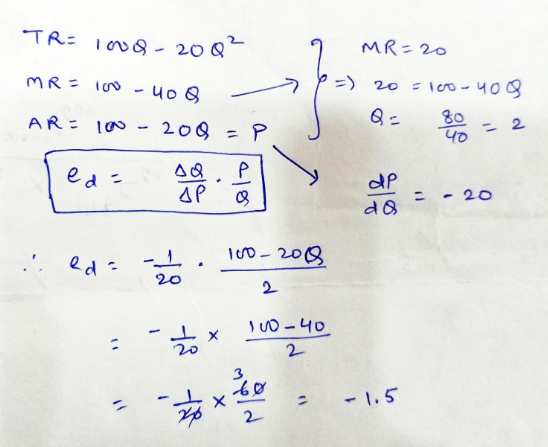 TR = 100Q - 20Q²
MR = 100 - 40Q
AR = 100 - 20Q = P
MR = 20
⇒ 20 = 100 - 40Q
Q = 80/40 = 2
ed = ΔQ/ΔP · P/Q
dP/dQ = - 20
∴ ed = -1/20 · (100 - 20Q)/2
= -1/20 × (100 - 40)/2
= -1/20 × 3 60/2 = -1.5